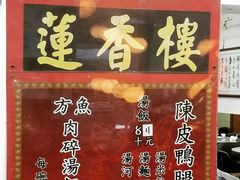 蓮香樓
陳皮鴨腿
湯飯
湯麵
湯河
元
魚
方肉碎湯
每碗